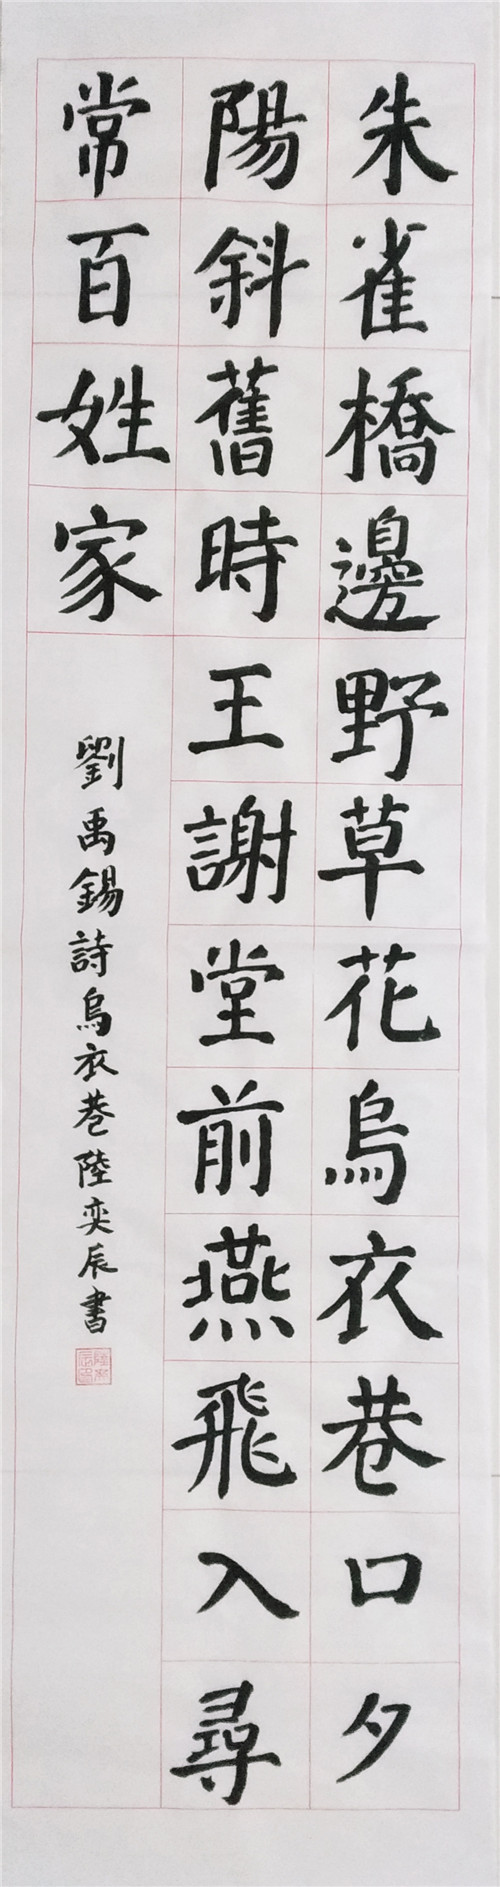 朱雀橋邊野草花烏衣巷口夕
陽斜舊時王謝堂前燕飛入尋
常百姓家
劉禹錫詩烏衣巷陸奕辰書